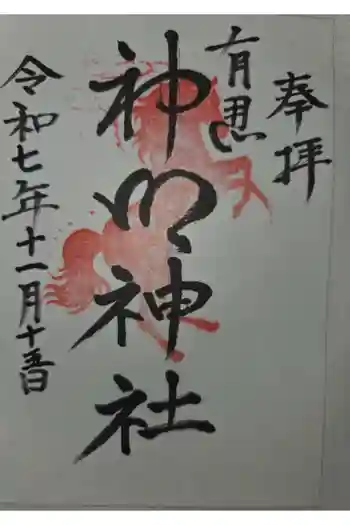 奉拝
有恩
神明神社
令和七年十一月十五日